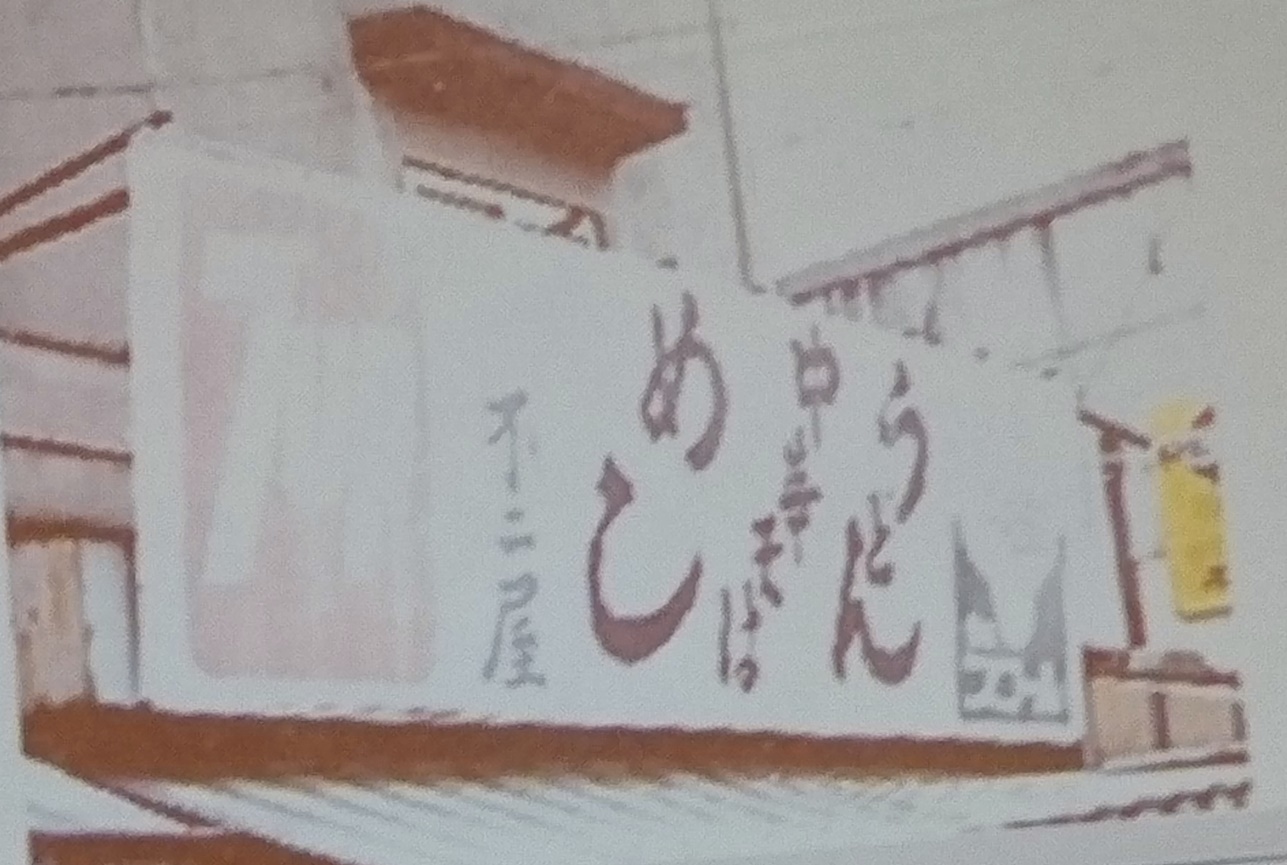 うどん
中華そば
めし
不二屋